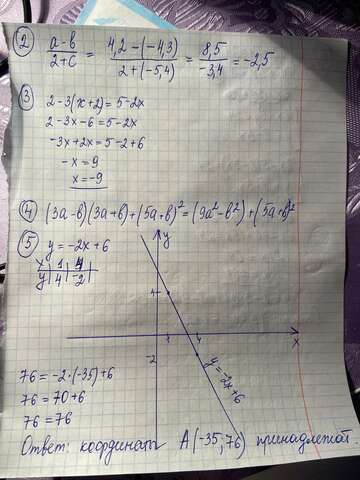 ② (a-в)/(2+c) = (4,2-(-4,3))/(2+(-5,4)) = 8,5/-3,4 = -2,5
③
2-3(x+2)=5-2x
2-3x-6=5-2x
-3x+2x=5-2+6
-x=9
x=-9
④ (3a-в)(3a+в)+(5a+в)²=(9a²-в²)+(5a+в)²
⑤ y=-2x+6
x | 1 | 4
y | 4 | -2
y
4
1 4
x
-2
y=-2x+6
76=-2·(-35)+6
76=70+6
76=76
Ответ: координаты А(-35,76) принадлежат.